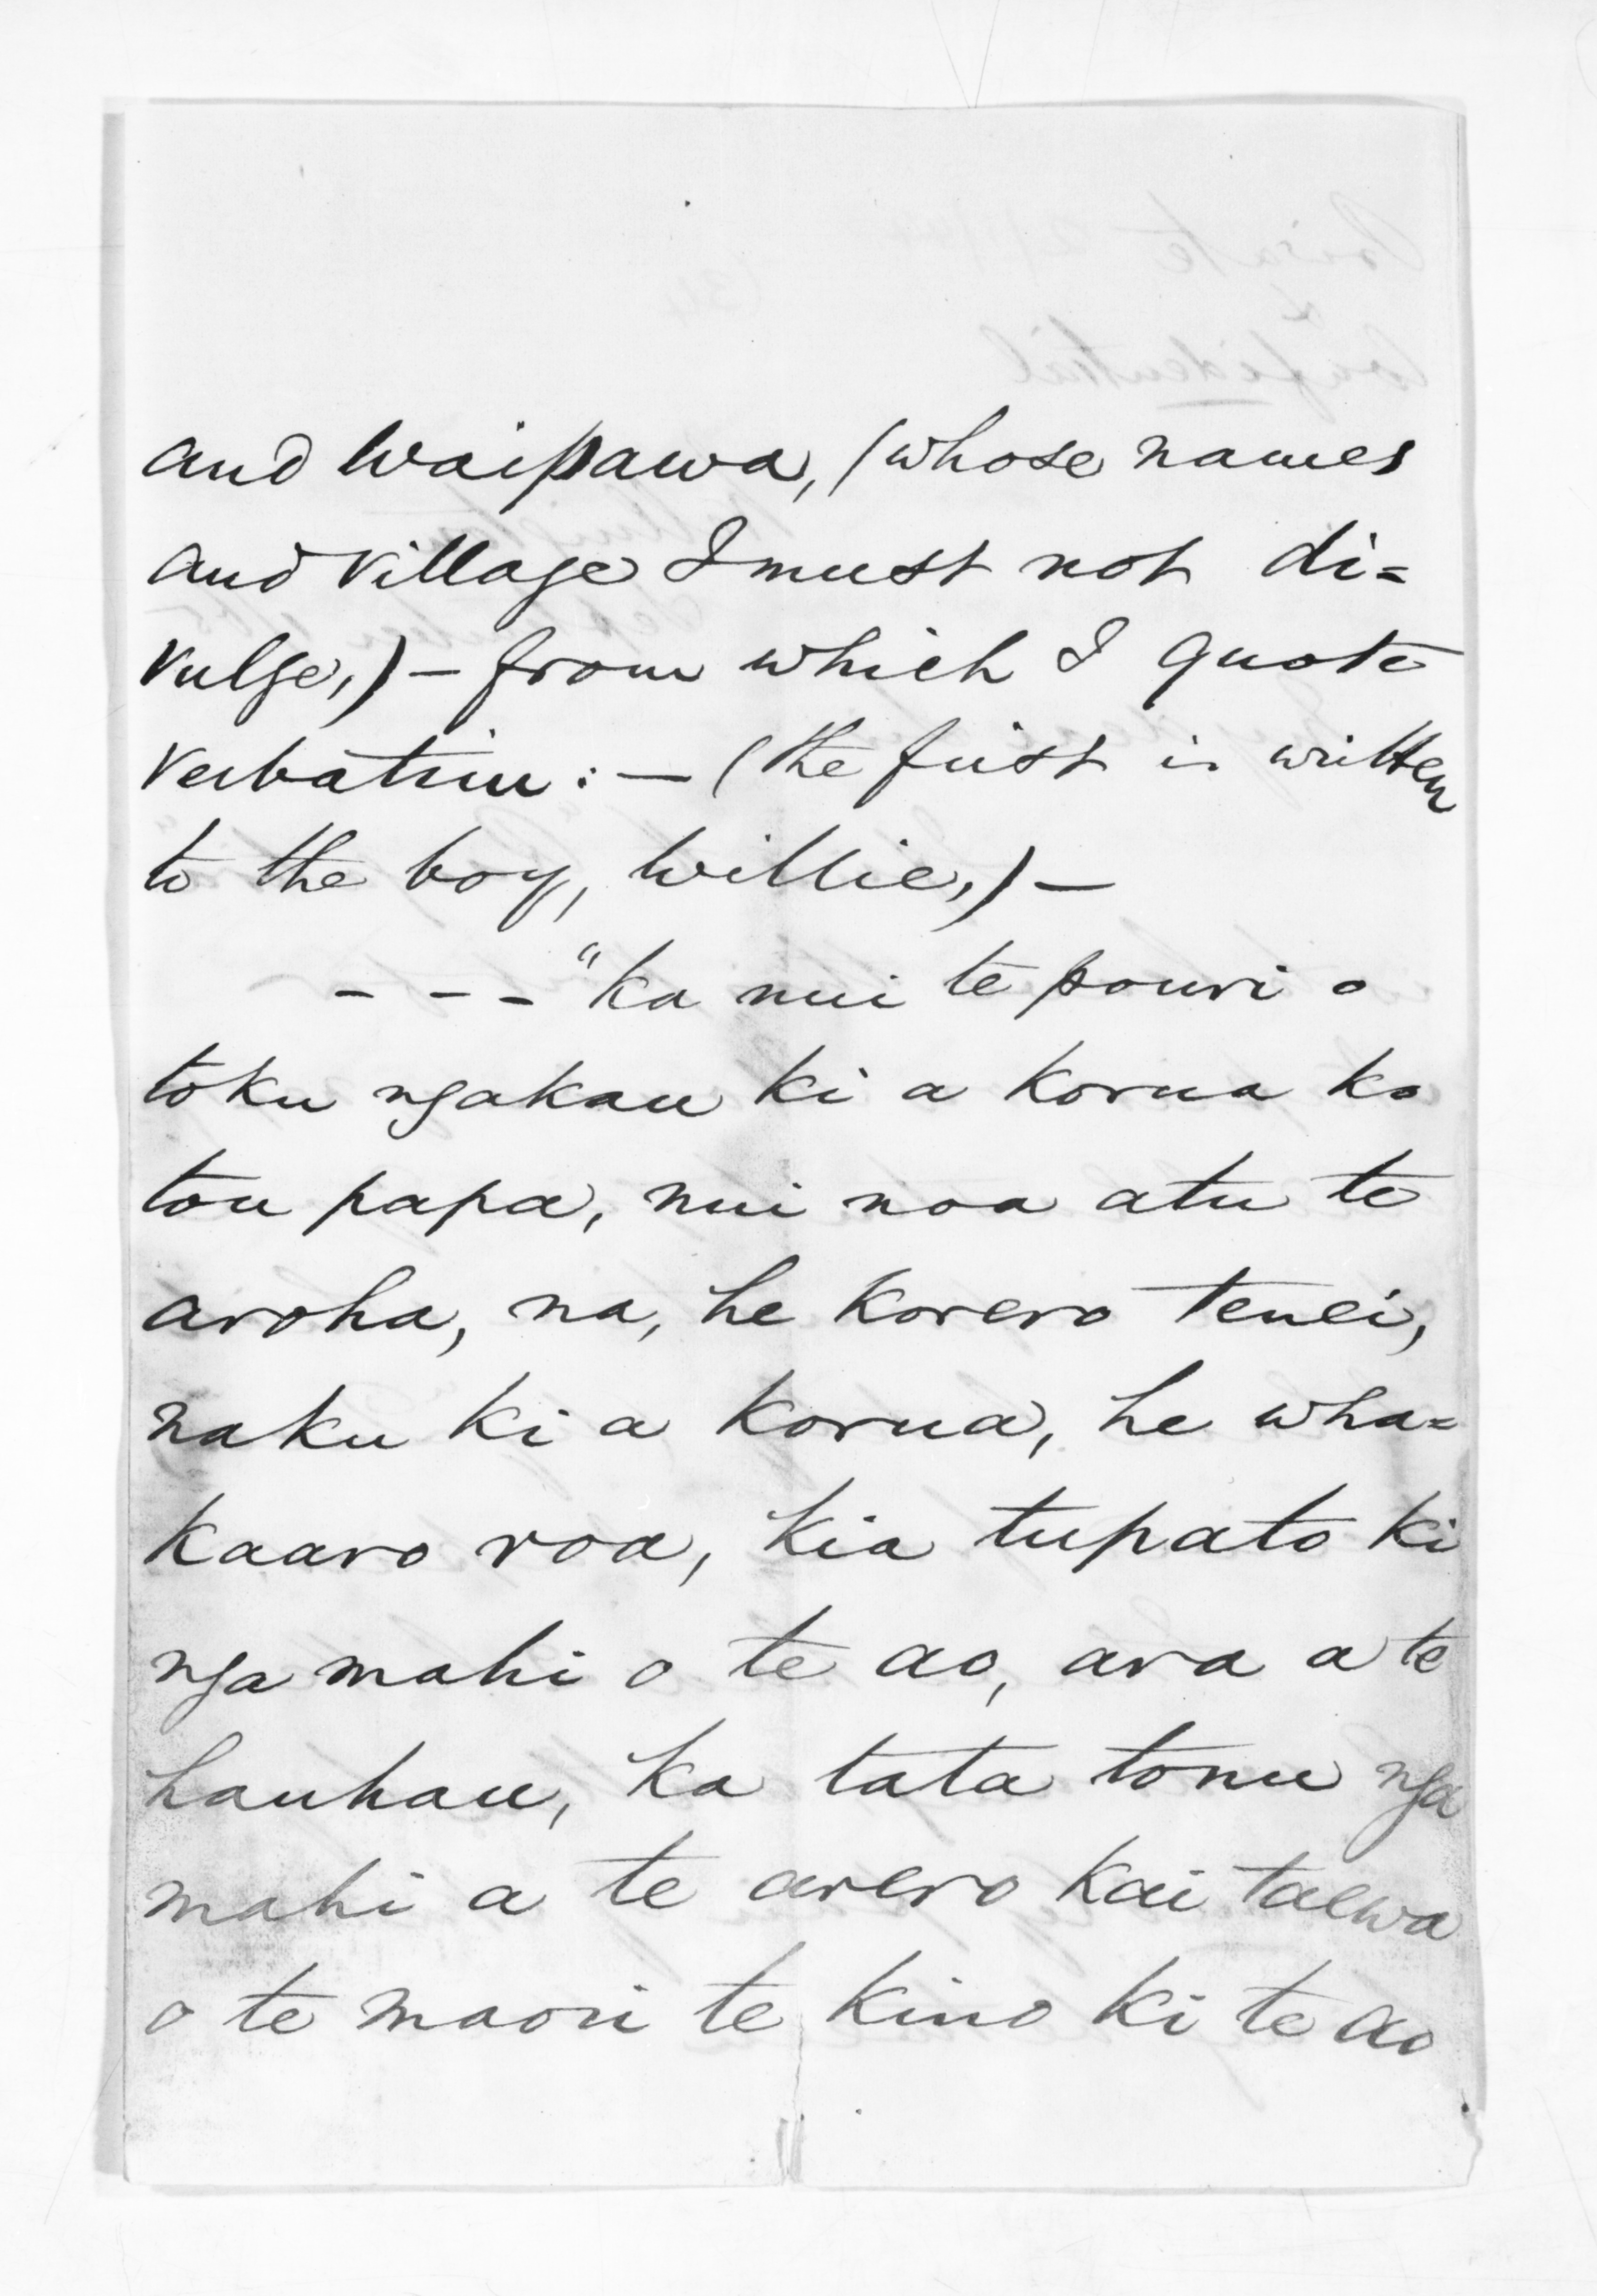 and Waipawa, (whose names
and village I must not di=
vulge,) – from which I quote
verbatim: – (the first is written
to the boy, Willie,) –
- - - "Ka nui te pouri o
toku ngakau ki a korua ko
tou papa, nui noa atu te
aroha, na, he korero tenei,
naku ki a korua, he wha=
kaaro roa, kia tupato ki
nga mahi o te ao, ara a te
hauhau, ka tata tonu nga
mahi a te arero kai taewa
o te maori te kino ki te ao